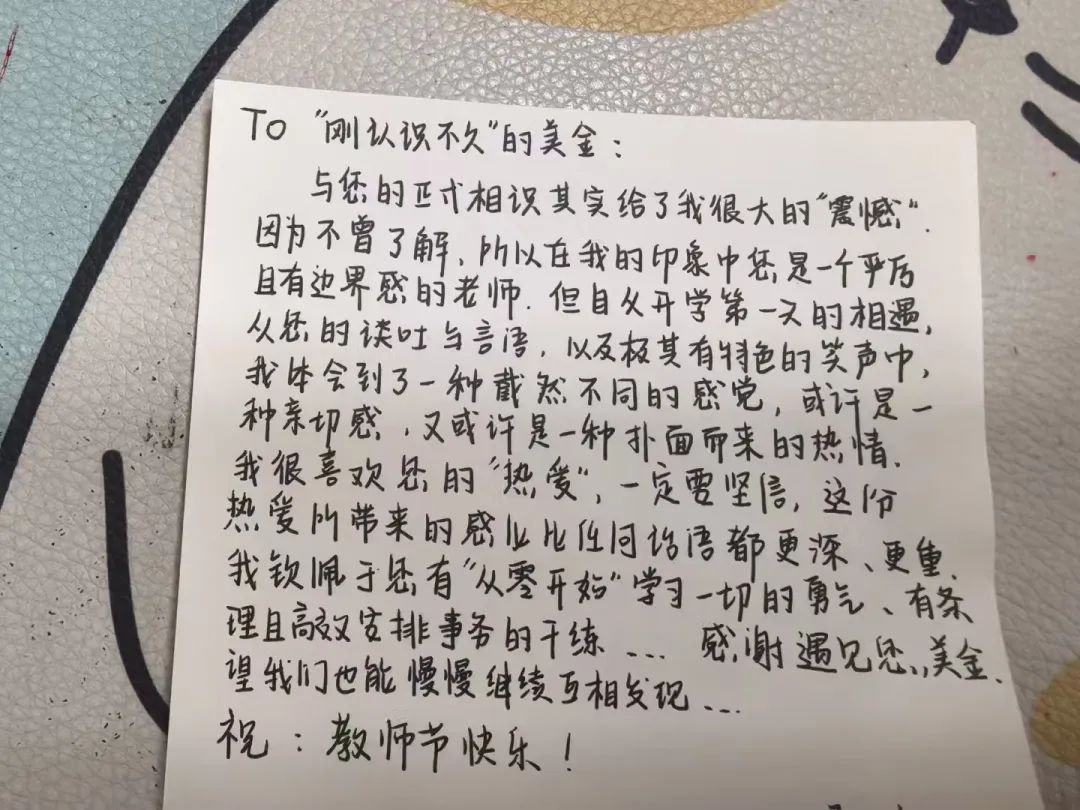 To “刚认识不久”的美金：
与您的正式相识其实给了我很大的“震憾”.
因为不曾了解、所以在我的印象中您是一个严厉
且有边界感的老师. 但自从开学第一天的相遇,
从您的谈吐与言语, 以及极其有特色的笑声中,
我体会到了一种截然不同的感觉, 或许是一
种亲切感, 又或许是一种扑面而来的热情.
我很喜欢您的“热爱”, 一定要坚信, 这份
热爱所带来的感业比任何话语都更深、更重.
我钦佩于您有“从零开始”学习一切的勇气、有条
理且高效安排事务的干练... 感谢遇见您,美金.
望我们也能慢慢继续互相发现...
祝：教师节快乐！